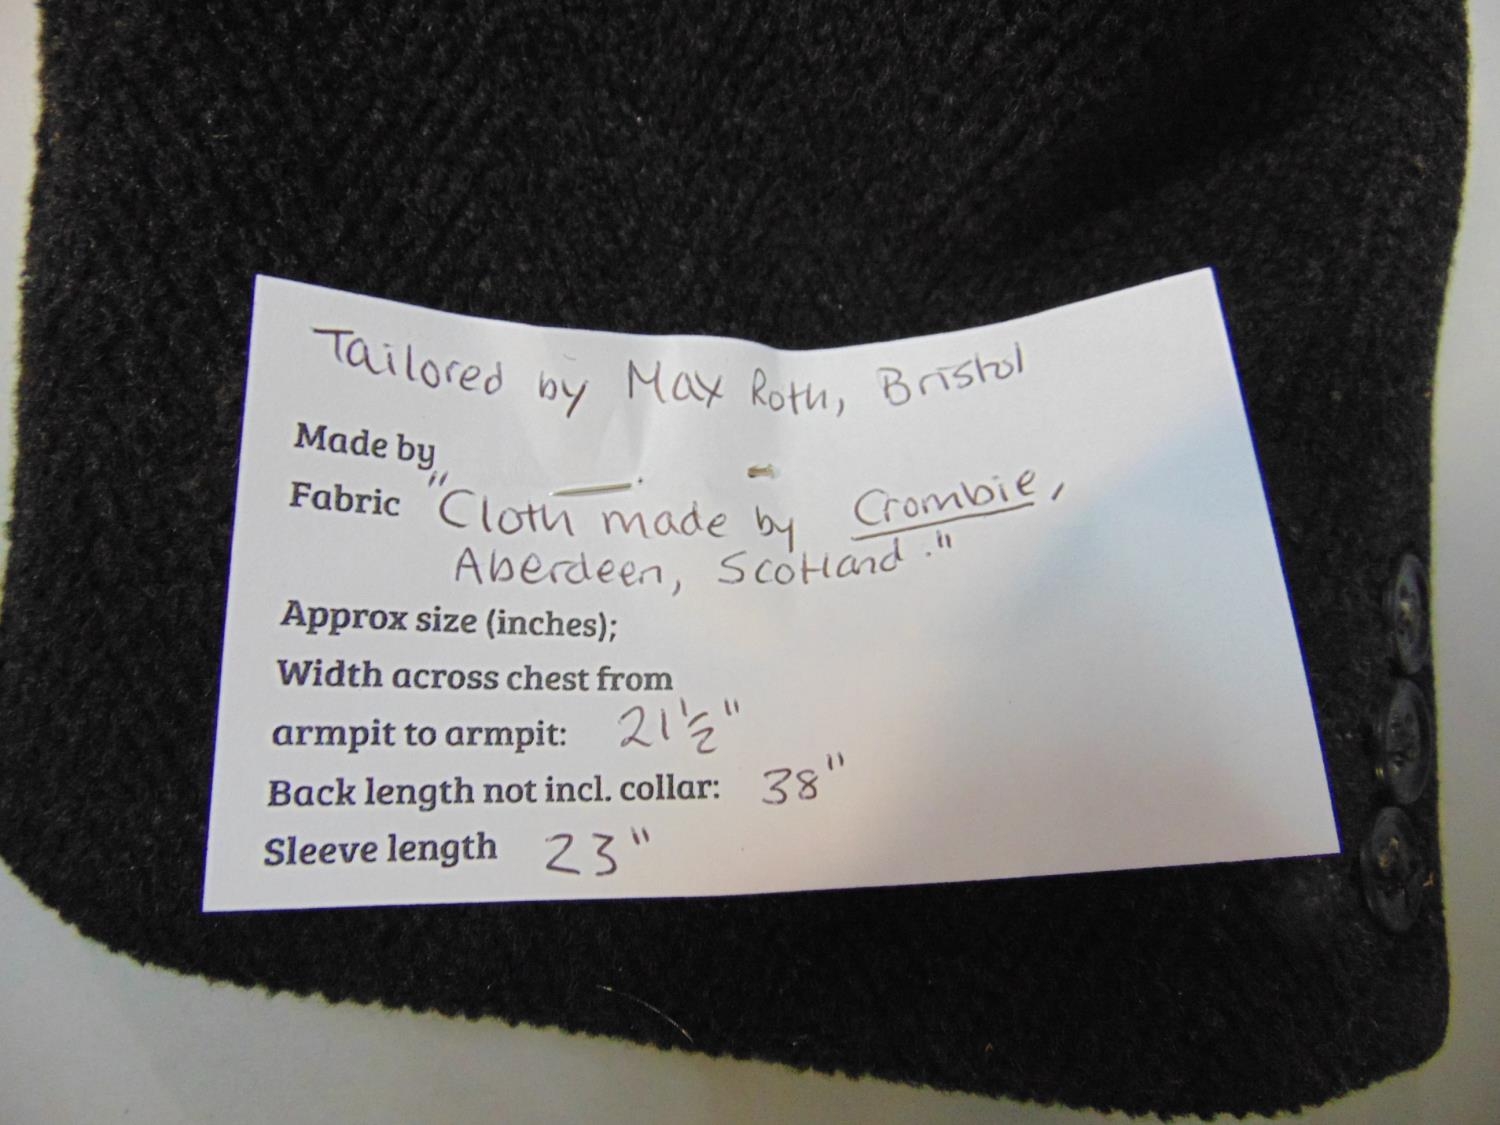 Tailored by Max Roth, Bristol
Made by
Fabric "Cloth made by Crombie,
Aberdeen, Scotland."
Approx size (inches);
Width across chest from
armpit to armpit: 21½"
Back length not incl. collar: 38"
Sleeve length 23"